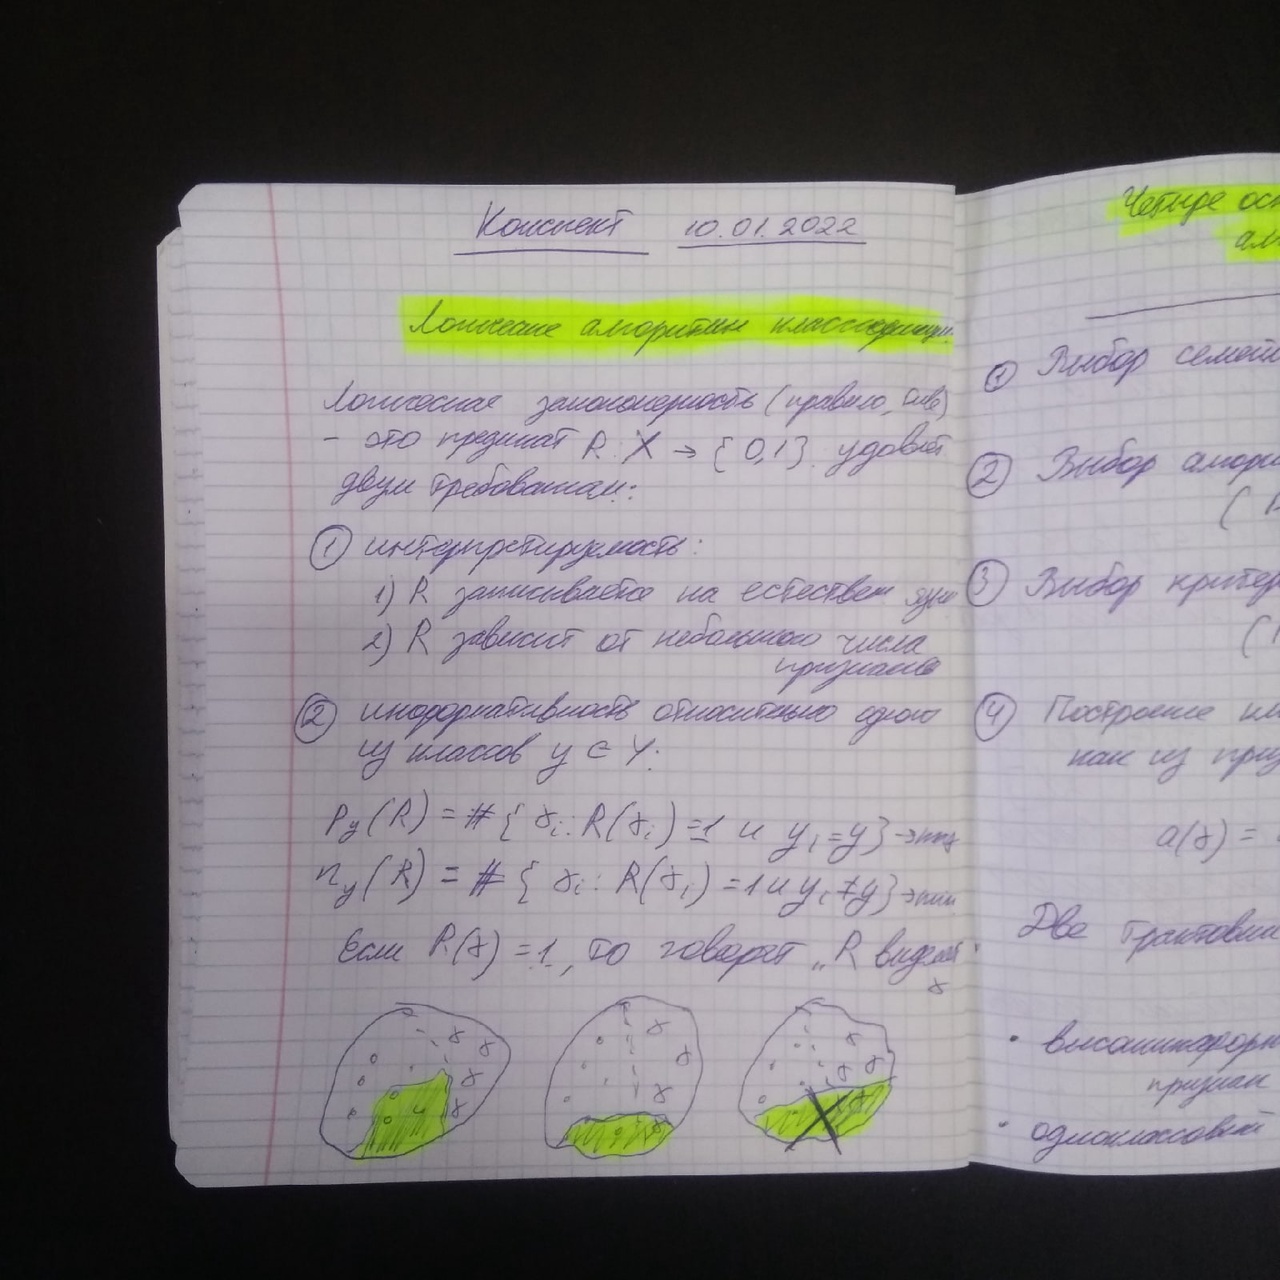 Конспект 10.01.2022
Логические алгоритмы классификации.
Логическая закономерность (правило, rule)
- это предикат R: X → {0,1} удовлет
двум требованиям:
① интерпретируемость:
1) R записывается на естествен языке
2) R зависит от небольшого числа
признаков
② информативность относительно одного
из классов y ∈ Y:
Py(R) = #{xi: R(xi)=1 и yi=y} →
ny(R) = #{xi: R(xi)=1 и yi≠y} →
Если R(x)=1, то говорят „R выделяет
x
Четыре осн
ал
① Выбор семей
② Выбор алгори
(
③ Выбор критер
(
④ Построение кл
как из приз
a(x) =
Две трактовки
• высокоинформ
признак
• одноклассовый